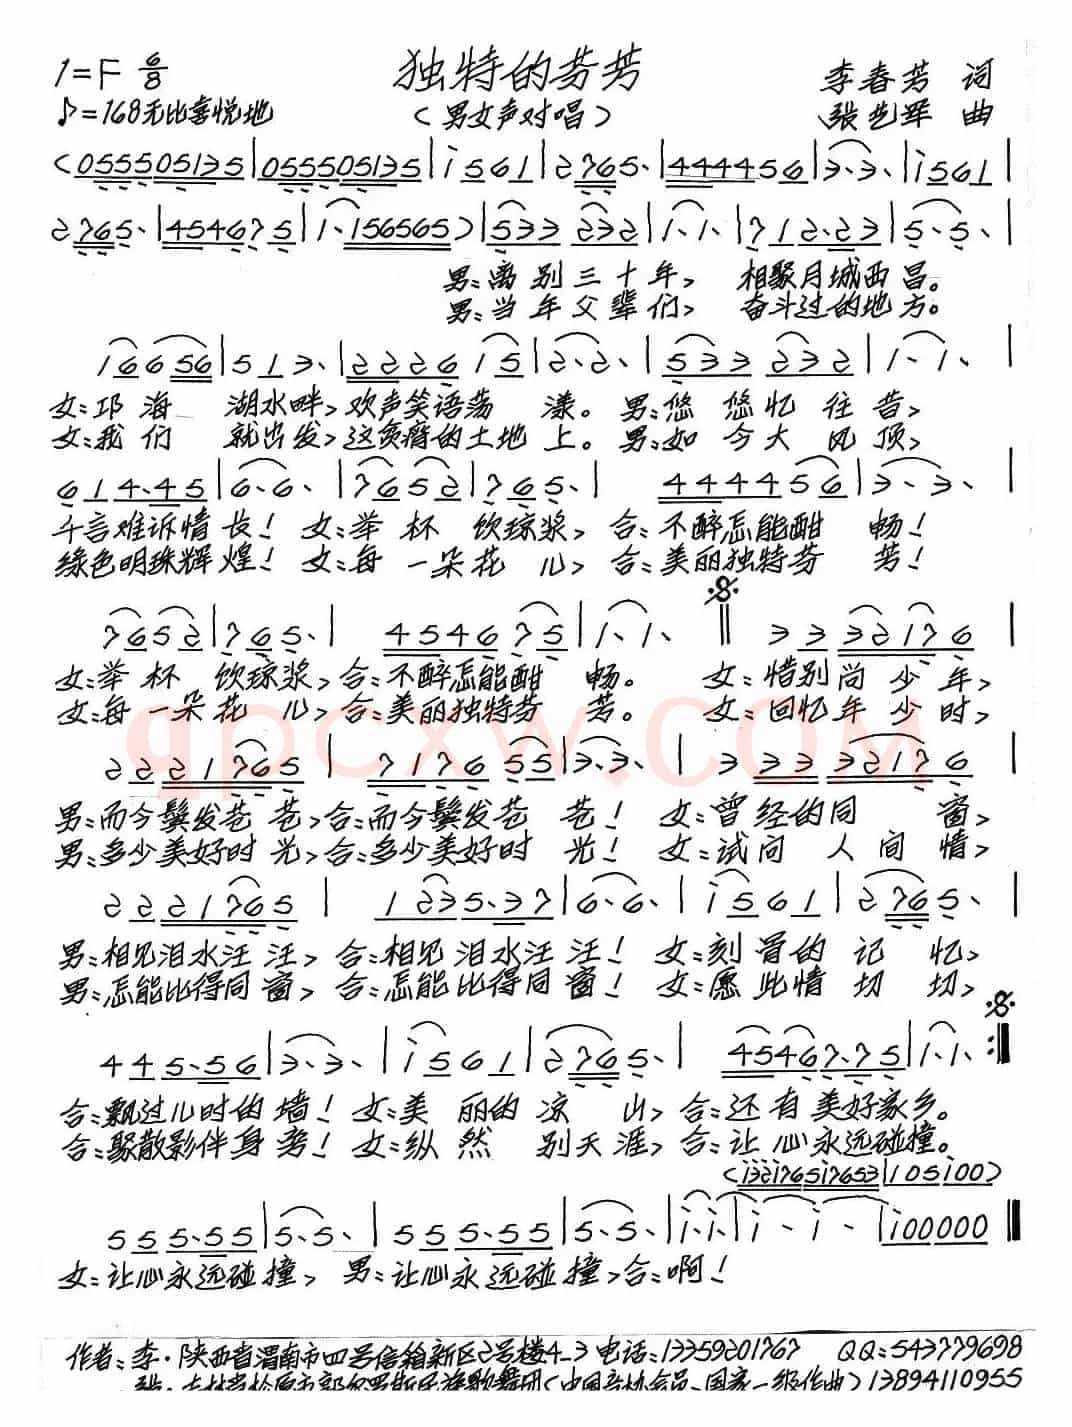 1=F 6/8
独特的芬芳
李春芳 词
♪=168无比喜悦地
（男女声对唱）
张艺军 曲
(055505135|055505135|i561|2765·|444456|3·3·|i561|
2765·|454675|1·156565)|533 232|1·1·|712·23|5·5·|
男:离别三十年, 相聚月城西昌。
男:当年父辈们, 奋斗过的地方。
16656|513·|222615|2·2·|533 232|1·1·|
女:邛海 湖水畔,欢声笑语荡 漾。男:悠悠忆往昔,
女:我们 就出发,这贫瘠的土地上。男:如今大风顶,
614·45|6·6·|7652|765·| 444456|3·3·|
千言难诉情长! 女:举杯 饮琼浆, 合:不醉怎能酣 畅!
绿色明珠辉煌! 女:每一朵花儿, 合:美丽独特芬 芳!
7652|765·| 454675|1·1·‖ 3332176|
女:举杯 饮琼浆,合:不醉怎能酣 畅。 女:惜别尚少年,
女:每一朵花儿,合:美丽独特芬 芳。 女:回忆年少时,
qpcxw.com
2221765| 717655|3·3·| 33332176|
男:而今鬓发苍 苍,合:而今鬓发苍 苍! 女:曾经的同 窗,
男:多少美好时 光,合:多少美好时 光! 女:试问人间情,
2221765| 1235·37|6·6·|i561|2765·|
男:相见泪水汪 汪, 合:相见泪水汪 汪! 女:刻骨的记 忆,
男:怎能比得同窗, 合:怎能比得同窗! 女:愿此情切 切,
445·56|3·3·|i561|2765·| 45467·75|1·1·:‖
合:飘过儿时的墙! 女:美丽的凉 山, 合:还有美好家乡。
合:聚散影伴身旁! 女:纵然 别天涯, 合:让心永远碰撞。
(i32i765i7653|105i00)
555·55|5·5·| 555·55|5·5·|i·i·|i - i -|i00000‖
女:让心永远碰撞, 男:让心永远碰撞,合:啊!
作者:李·陕西省渭南市四号信箱新区2号楼4_3 电话:13359201767 QQ:543779698
张·吉林省松原市郭尔罗斯民族歌舞团(中国音协会员、国家一级作曲)13894110955